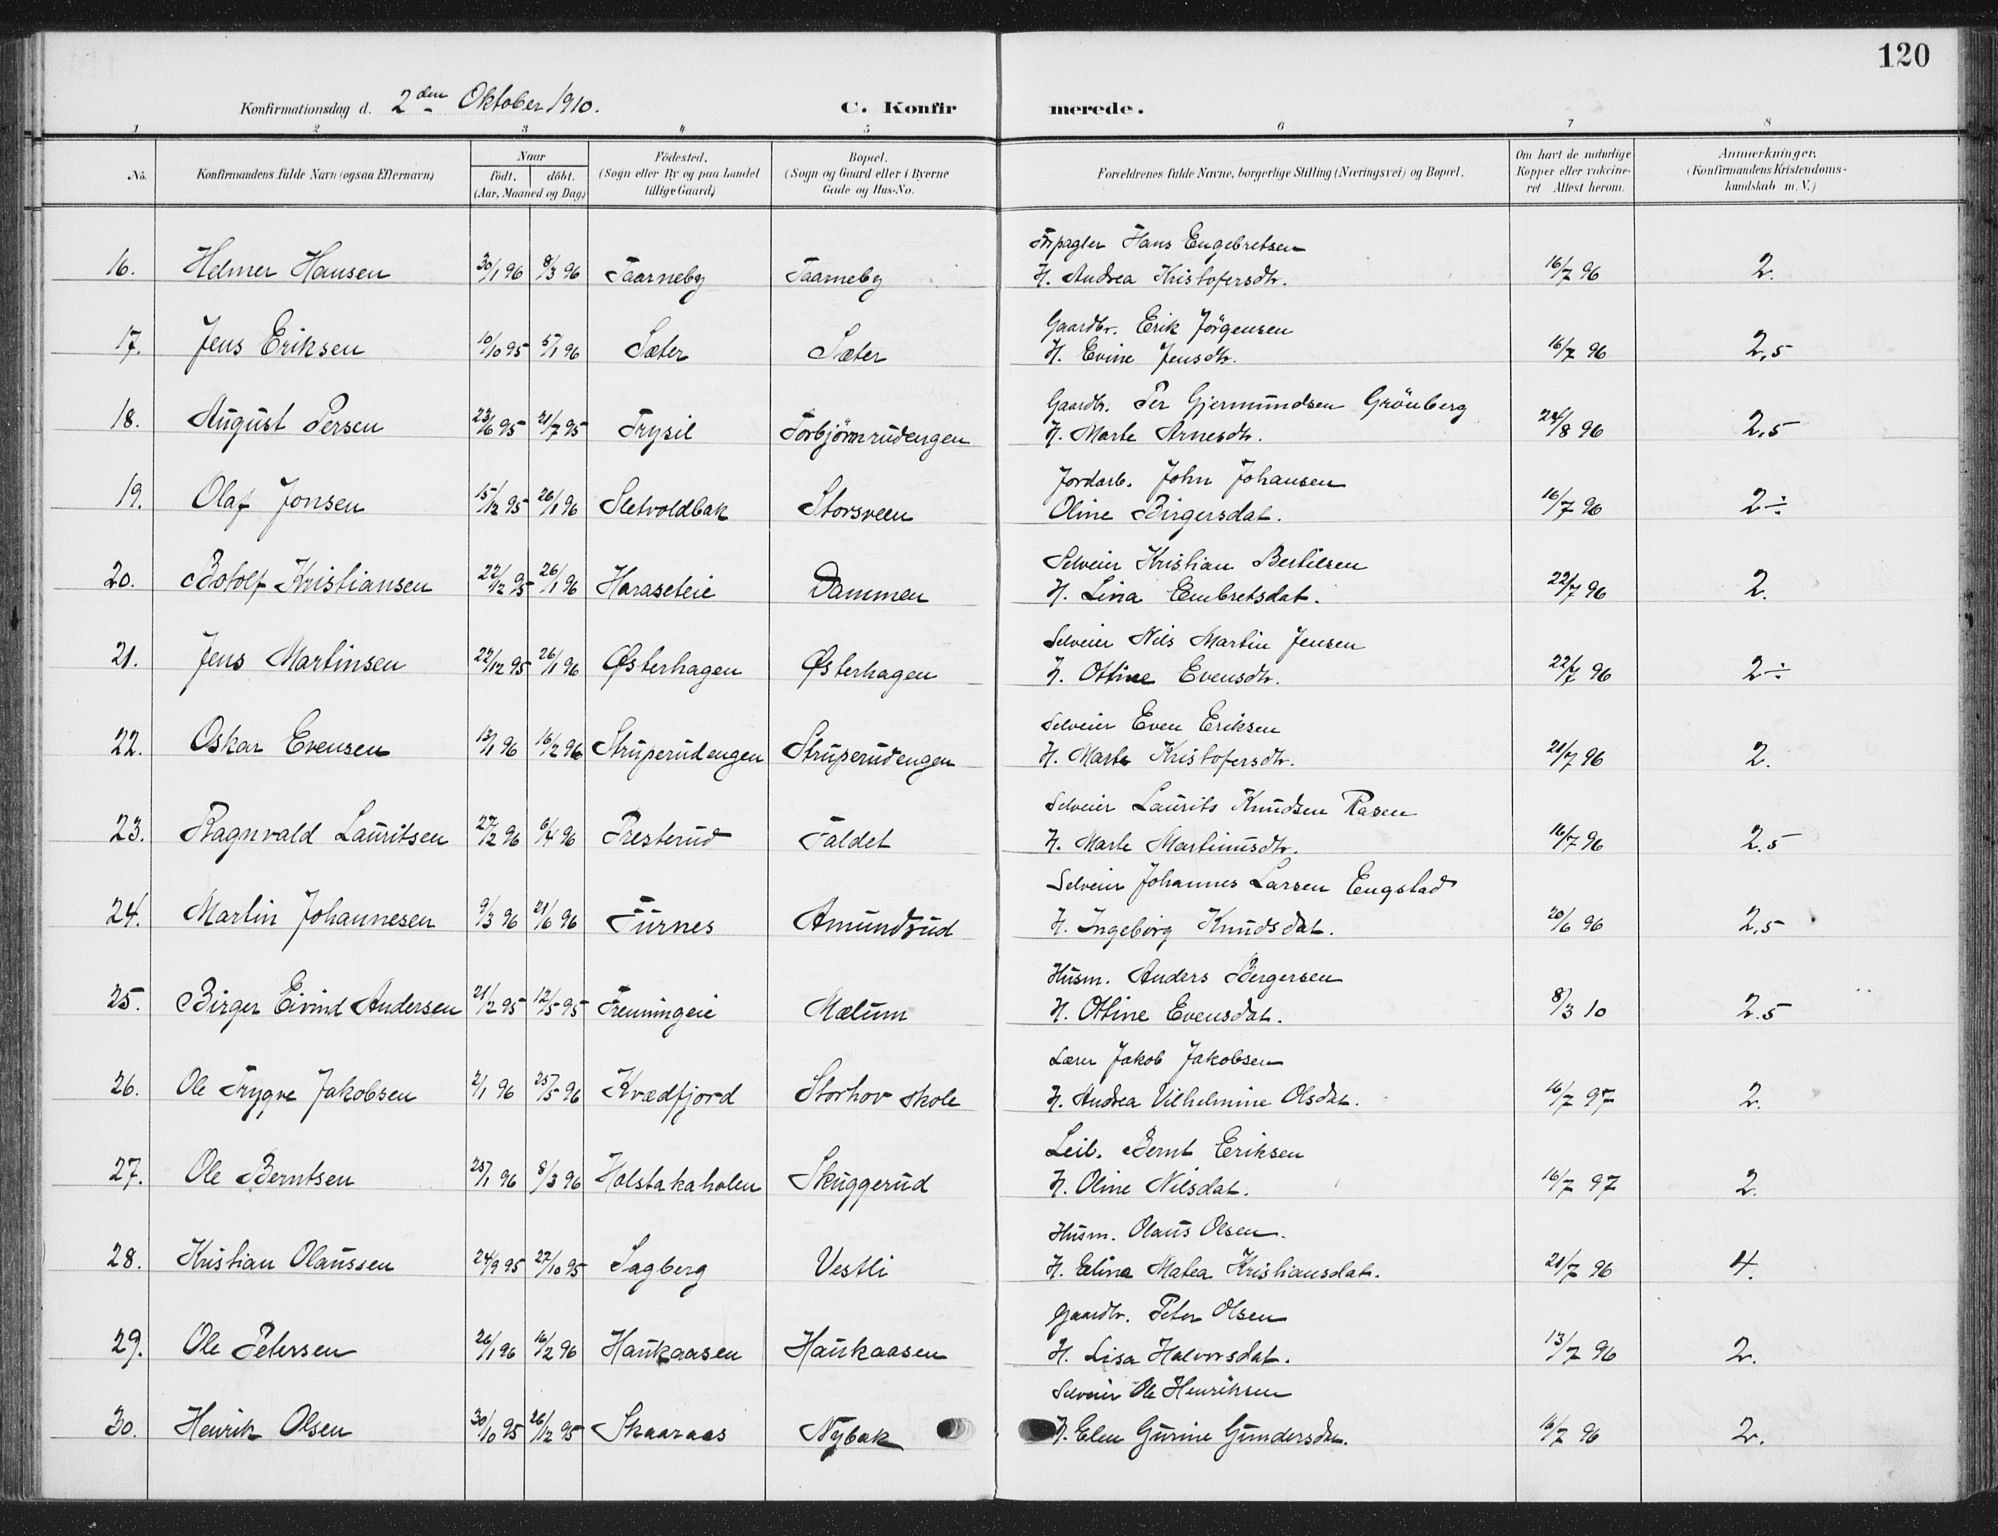 120
Konfirmationsdag d. 2den Oktober 1910. C. Konfir merede.
1 2 3 4 5 6 7 8
No. Konfirmandens fulde Navn (ogsaa Efternavn) Naar födt. döbt. (Aar, Maaned og Dag) Födested. (Sogn eller By og paa Landet tillige Gaard) Bopæl. (Sogn og Gaard eller i Byerne Gade og Hus-No. Forældrenes fulde Navne, borgerlige Stilling (Næringsvei) og Bopæl. Om havt de naturlige Kopper eller vakcineret Attest herom. Anmærkninger. (Konfirmandens Kristendomskundskab m. V.)
Hans Engebretsen
16. Helmer Hansen 30/1 96 8/3 96 Taarneby Taarneby H. Andrea Kristofersdtr. 16/7 96 2.
Gaardbr. Erik Jørgensen
17. Jens Eriksen 10/10 95 5/1 96 Sæter Sæter H. Evine Jensdtr. 16/7 96 2,5
Gaardbr. Per Gjermundsen Grönberg
18. August Persen 23/6 95 21/7 95 Trysil Torbjörnrudengen H. Marte Arnesdtr. 24/8 96 2,5
Jordarb. John Johansen
19. Olaf Jonsen 15/12 95 26/1 96 Sletvoldbak Storsveen Oline Birgersdat. 16/7 96 2÷
Selveier Kristian Bertilsen
20. Botolf Kristiansen 22/12 95 26/1 96 Haraseteie Dammen H. Lina Embretsdat. 22/7 96 2.
Selveier Nils Martin Jensen
21. Jens Martinsen 22/12 95 26/1 96 Østerhagen Østerhagen H. Ottine Evensdtr. 22/7 96 2÷
Selveier Even Eriksen
22. Oskar Evensen 13/1 96 16/2 96 Struperudengen Struperudengen H. Marte Kristofersdtr. 21/7 96 2.
Selveier Laurits Knudsen Rasen
23. Ragnvald Lauritsen 27/2 96 6/4 96 Presterud Faldet H. Marte Martinusdtr. 16/7 96 2.5
Selveier Johannes Larsen Engstad
24. Martin Johannesen 9/3 96 21/6 96 Furnes Amundrud H. Ingeborg Knudsdat. 20/6 96 2,5
Husm. Anders Bergersen
25. Birger Eivind Andersen 21/2 95 12/5 95 Frenningeie Mælum H. Ottine Evensdat. 8/3 10 2.5
Lærer Jakob Jakobsen
26. Ole Trygve Jakobsen 2/1 96 25/5 96 Kvædfjord Storhov skole H. Andrea Vilhelmine Olsdat. 16/7 97 2.
Leil. Bernt Eriksen
27. Ole Berntsen 25/1 96 8/3 96 Holstakaholen Skuggerud H. Oline Nilsdat. 16/7 97 2.
Husm. Olaus Olsen.
28. Kristian Olaussen 24/9 95 27/10 95 Sagberg Vestli H. Elina Matea Kristiansdat. 21/7 96 4.
Gaardbr. Peter Olsen
29. Ole Petersen 26/1 96 16/2 96 Haukaasen Haukaasen H. Lisa Halvorsdat. 13/7 96 2.
Selveier Ole Henriksen
30. Henrik Olsen 30/10 95 26/12 95 Skaaraas Nybak H. Elen Gurine Gundersdat. 16/7 96 2.